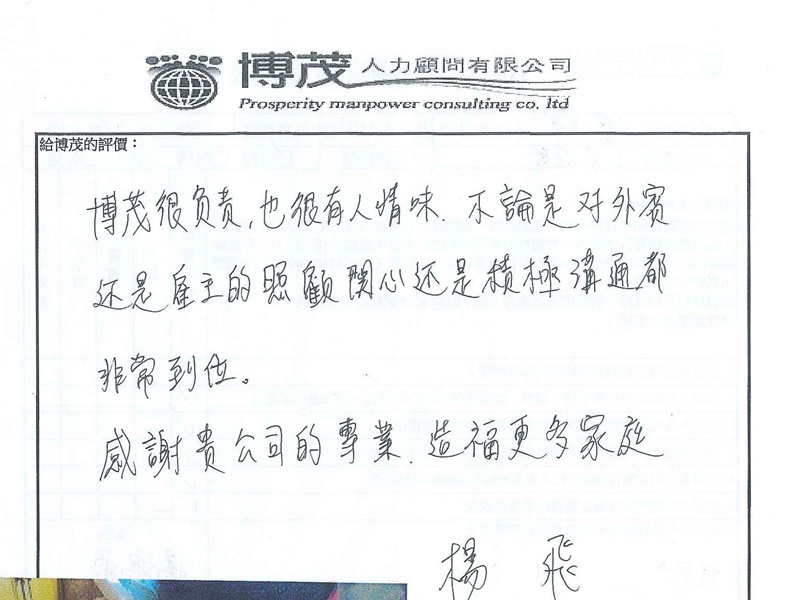 博茂人力顧問有限公司
Prosperity manpower consulting co. ltd
給博茂的評價：
博茂很负责,也很有人情味.不論是对外賓
还是雇主的照顧関心还是積極溝通都
非常到位。
感謝貴公司的專業.造福更多家庭
楊 飛